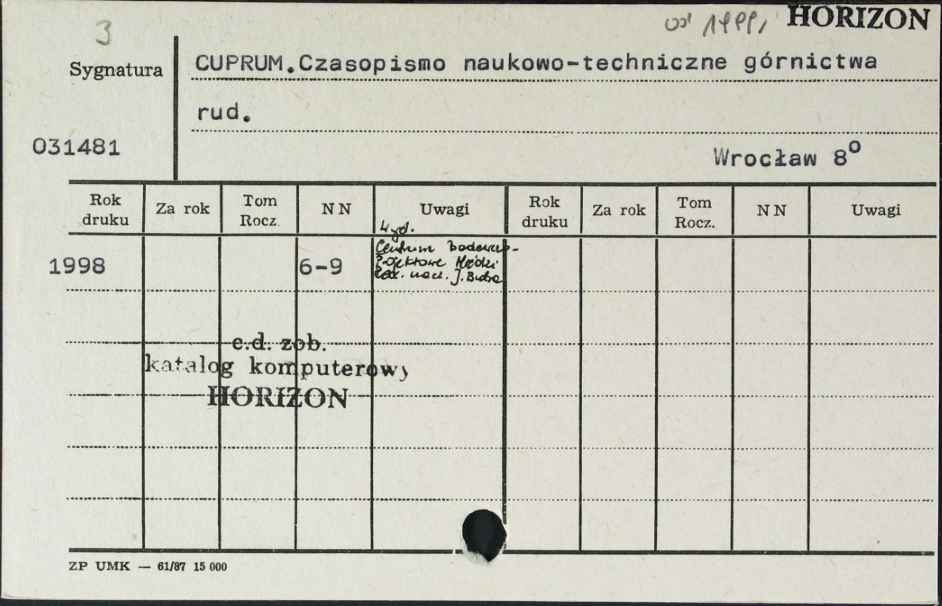 3
od 1999, HORIZON
Sygnatura
CUPRUM.Czasopismo naukowo-techniczne górnictwa
rud.
031481
Wrocław 8°
Rok druku Za rok Tom Rocz. NN Uwagi Rok druku Za rok Tom Rocz. NN Uwagi
Wyd.
Centrum Badawczo-
1998 6-9 Projektowe Miedzi
Red. nacz. J.
c.d. zob.
katalog komputerowy
HORIZON
ZP UMK — 61/87 15 000